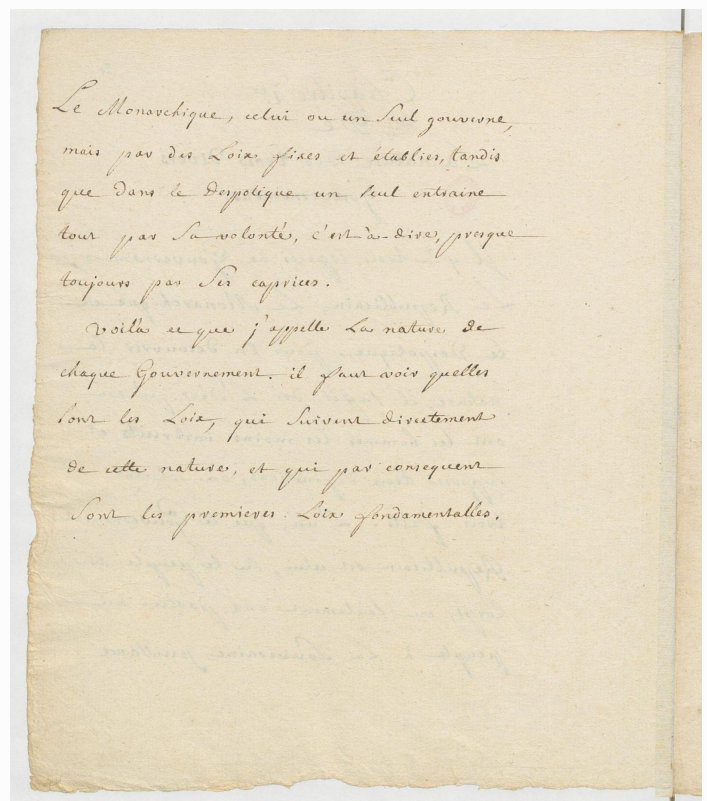 Le Monarchique, celui ou un seul gouverne,
mais par des Loix fixes et établies, tandis
que dans le Despotique un seul entraine
tout par sa volonté, c'est-à-dire, presque
toujours par ses caprices.
Voilà ce que j'appelle la nature de
chaque Gouvernement. il faut voir quelles
sont les Loix, qui suivent directement
de cette nature, et qui par consequent
sont les premieres Loix fondamentalles.